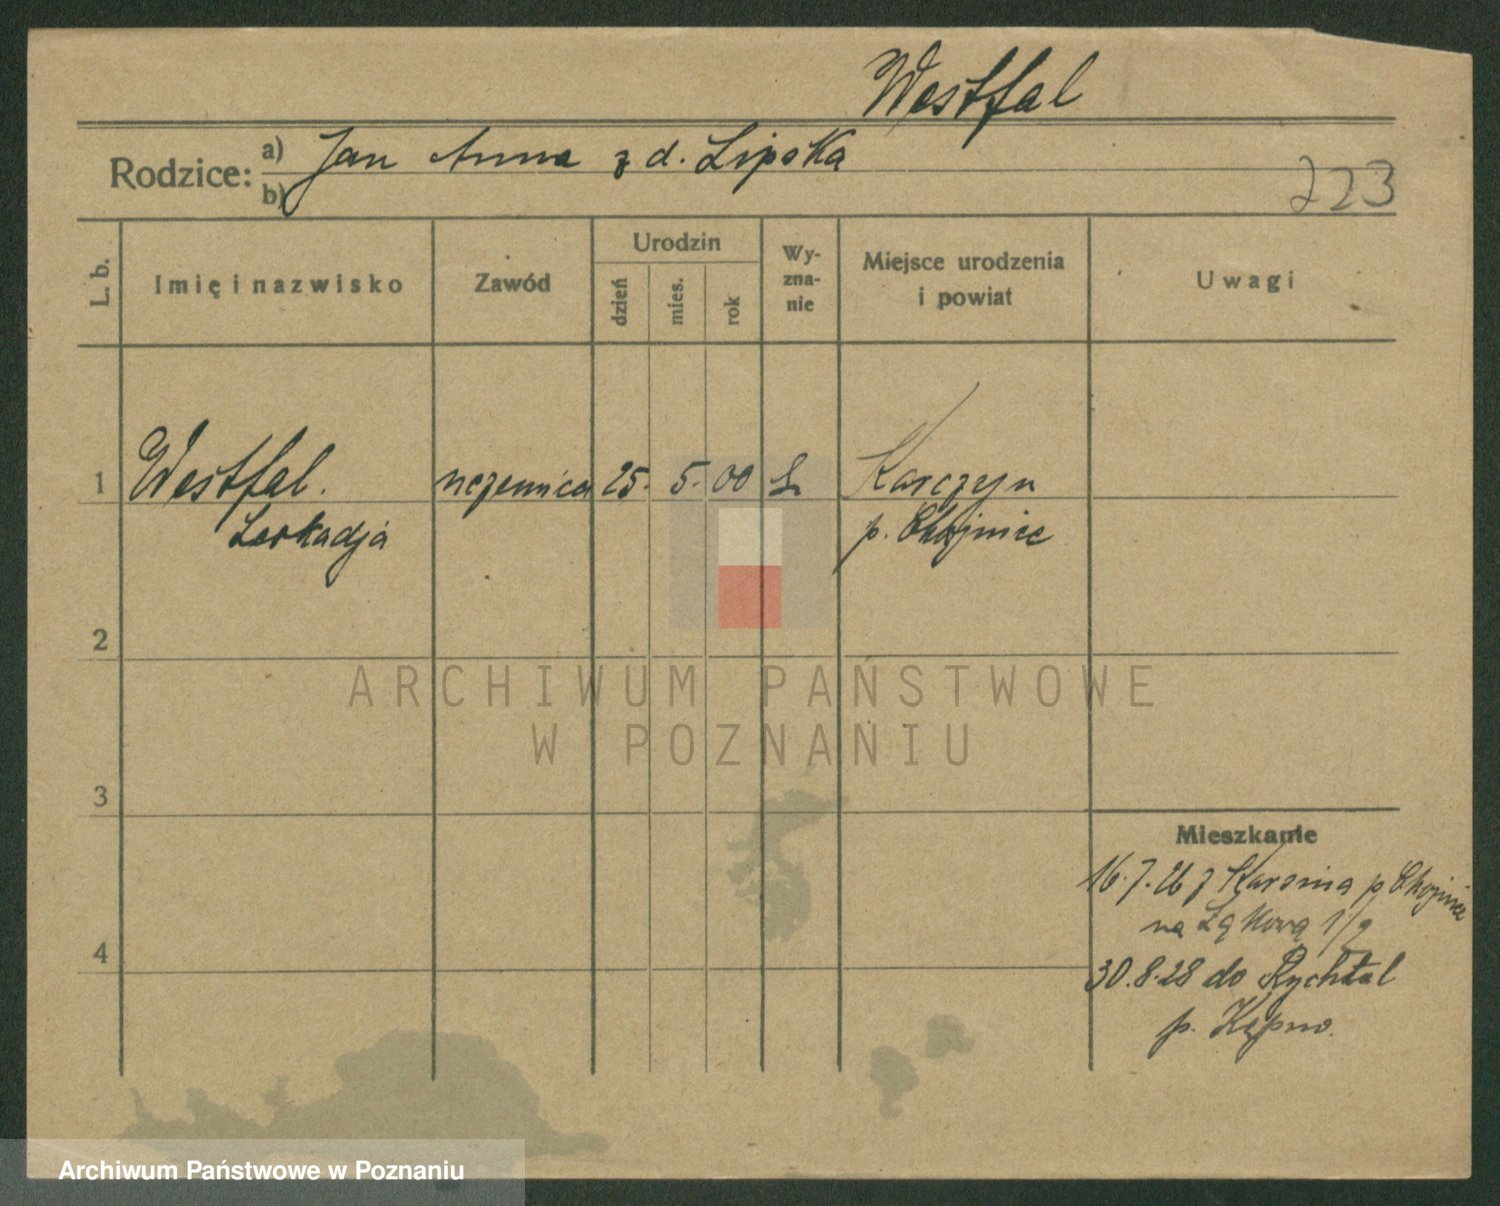 Westfal
Rodzice: a) Jan Anna z d. Lipska
b)
223
L. b.
Imię i nazwisko
Zawód
Urodzin
dzień
mies.
rok
Wy-
zna-
nie
Miejsce urodzenia
i powiat
Uwagi
1 Westfal. uczennica 25. 5. 00 Karczyn
Leokadja p. Chojnice
2
ARCHIWUM PAŃSTWOWE
W POZNANIU
3
Mieszkanie
16.7.26 z Karsina p Chojnice
na Łąkową 1/9
4
30.8.28 do Rychtal
p. Kępno.
Archiwum Państwowe w Poznaniu